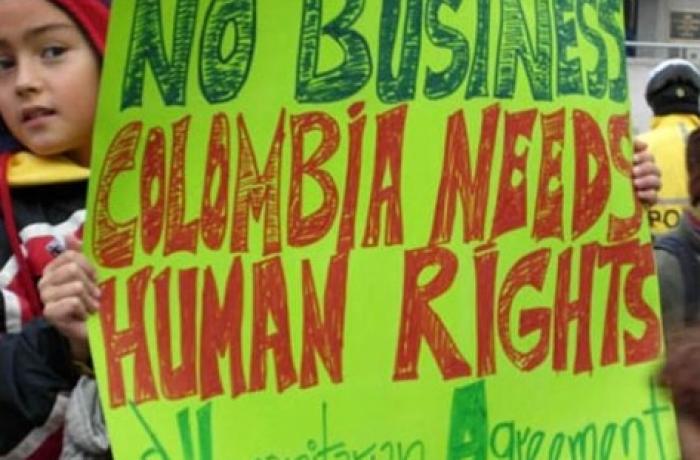 NO BUSINESS
COLOMBIA NEEDS
HUMAN RIGHTS
Humanitarian Agreement
PO